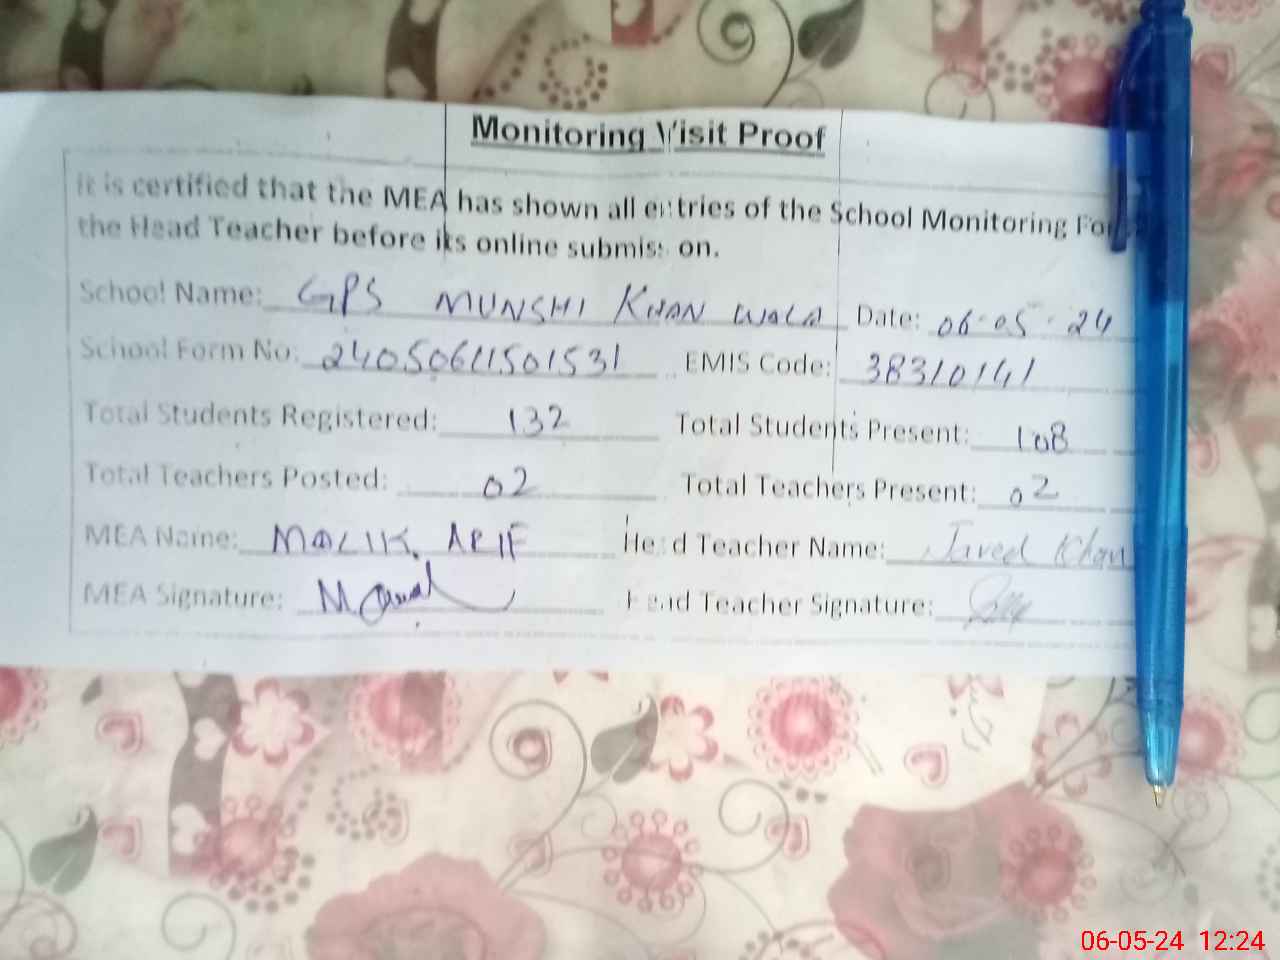 Monitoring Visit Proof
it is certified that the MEA has shown all entries of the School Monitoring
the Head Teacher before its online submission.
School Name: GPS MUNSHI KHAN WALA Date: 06-05-24
School Form No: 24050611501531 EMIS Code: 38310141
Total Students Registered: 132 Total Students Present: 108
Total Teachers Posted: 02 Total Teachers Present: 02
MEA Name: MALIK ARIF Head Teacher Name: Javed Khan
MEA Signature: Head Teacher Signature:
06-05-24 12:24